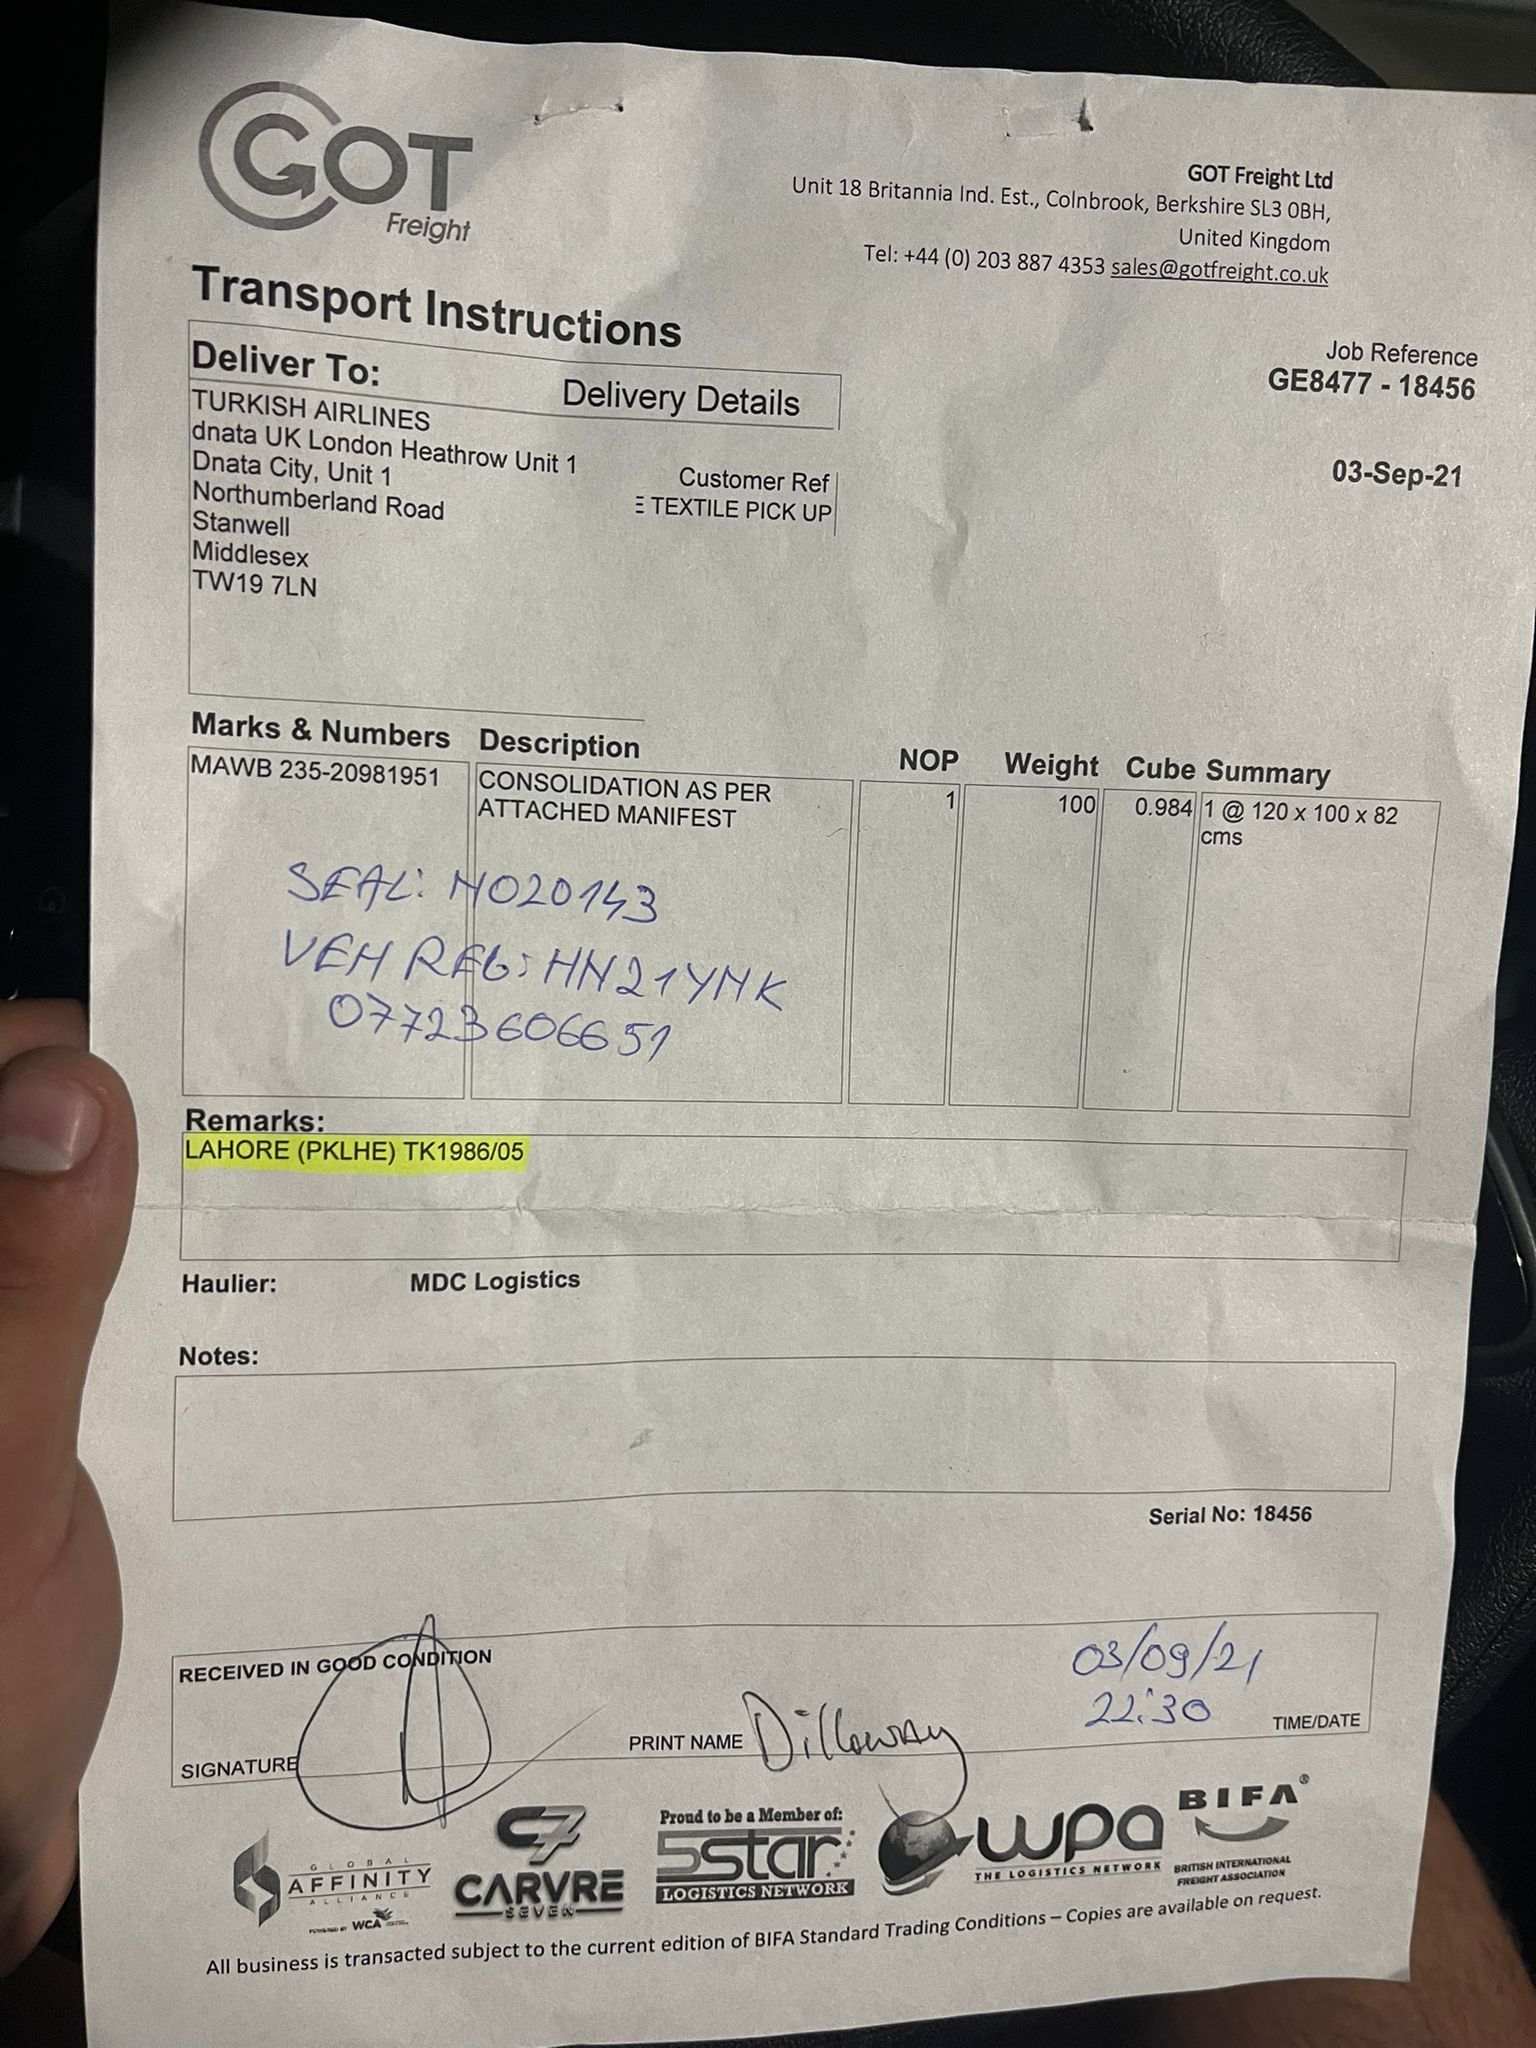 GOT
Freight
GOT Freight Ltd
Unit 18 Britannia Ind. Est., Colnbrook, Berkshire SL3 0BH,
United Kingdom
Tel: +44 (0) 203 887 4353 sales@gotfreight.co.uk
Transport Instructions
Job Reference
GE8477 - 18456
03-Sep-21
Deliver To:
Delivery Details
TURKISH AIRLINES
dnata UK London Heathrow Unit 1
Dnata City, Unit 1
Northumberland Road
Stanwell
Middlesex
TW19 7LN
Customer Ref
TEXTILE PICK UP
Marks & Numbers Description NOP Weight Cube Summary
MAWB 235-20981951 CONSOLIDATION AS PER 1 100 0.984 1 @ 120 x 100 x 82
ATTACHED MANIFEST cms
SEAL: N020143
VEH REG: HN21YNK
07723606651
Remarks:
LAHORE (PKLHE) TK1986/05
Haulier: MDC Logistics
Notes:
Serial No: 18456
RECEIVED IN GOOD CONDITION
03/09/21
22:30
SIGNATURE PRINT NAME Dilloway TIME/DATE
GLOBAL
AFFINITY
ALLIANCE
POWERED BY WCA
C7
CARVRE
SEVEN
Proud to be a Member of:
5star
LOGISTICS NETWORK
wpa
THE LOGISTICS NETWORK
BIFA®
BRITISH INTERNATIONAL
FREIGHT ASSOCIATION
All business is transacted subject to the current edition of BIFA Standard Trading Conditions – Copies are available on request.